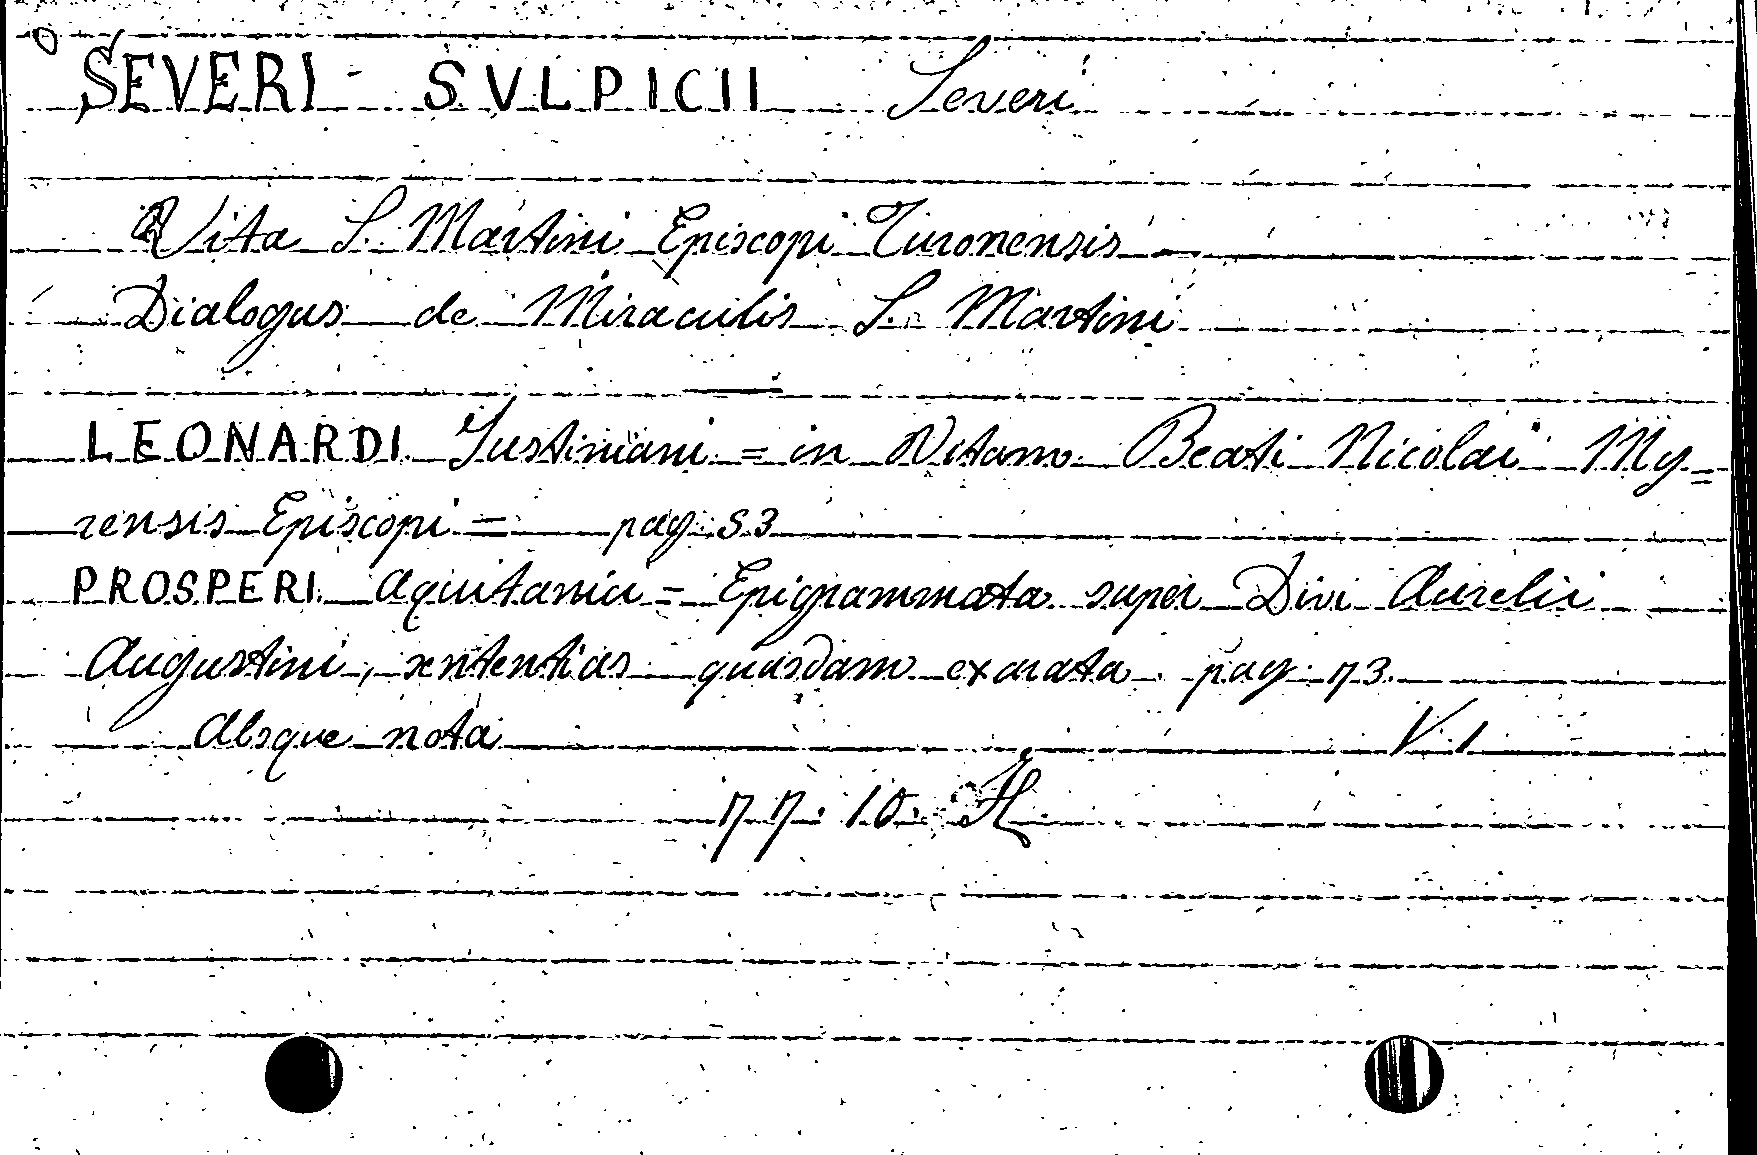 SEVERI - SVLPICII Severi
Vita S. Martini Episcopi Turonensis
Dialogus de Miraculis S. Martini
LEONARDI Justiniani = in Vitam Beati Nicolai My=
rensis Episcopi = pag. 53
PROSPERI Aquitanici = Epigrammata super Divi Aurelii
Augustini, sententias quasdam exarata pag. 73.
Absque nota V. 1
77. 10. H.